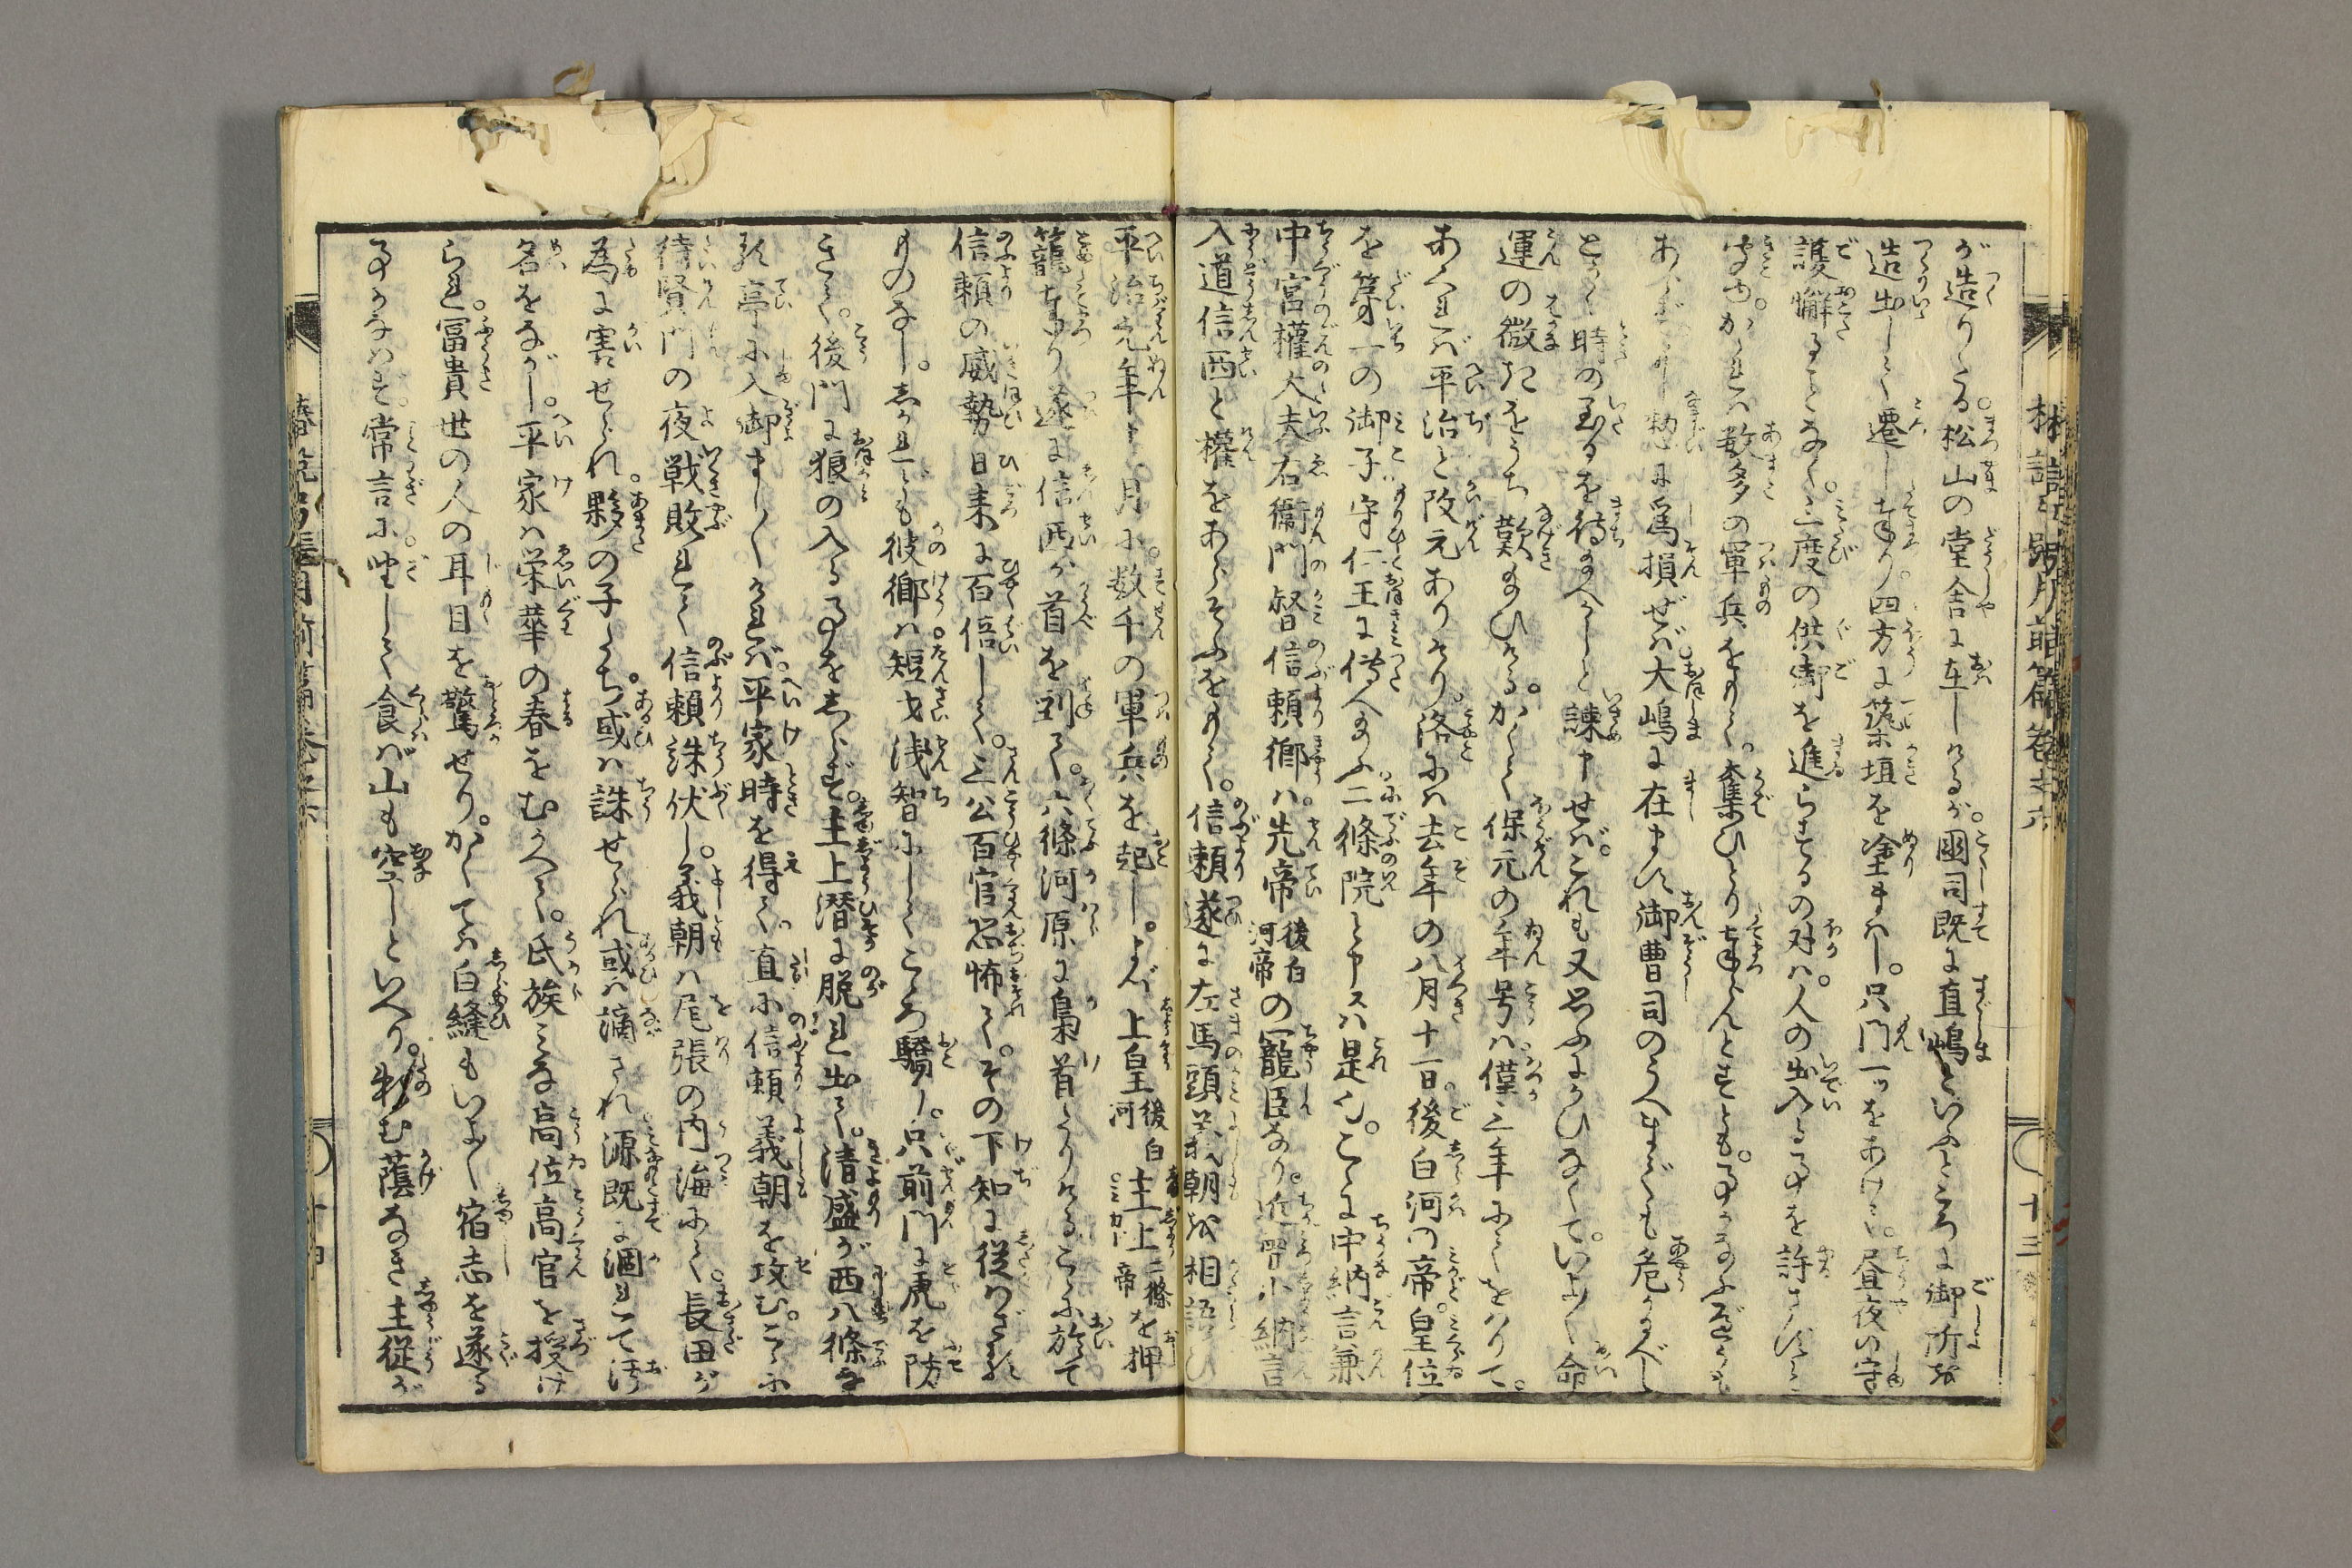 が造りたる松山の堂舎に在しけるが。國司既に直嶋といふところに御所を
造出して遷し奉り。四方に築垣を塗まはし。只門一ッをあけて。昼夜の守
護懈ることなく。三度の供御を進らするの外は。人の出入る事を許さずとぞ
聞ゆ。かゝれば数多の軍兵をもて。奪ひとり奉らんとすとも。事かなふべうも
あらず。もし愁に爲損ぜば。大嶋に在ます御曹司のうへまでも危かるべし
とかく時の到るを待給へかしと諫申せば。これも又思ふにかひなくて。いよゝ命
運の微きをうち歎給ひける。かくて保元の年号は僅三年にてをはりて。
あくれば平治と改元ありけり。洛には去年の八月十一日。後白河の帝。皇位
を第一の御子守仁王に傳へ給ふ二條院と申スは是也。こゝに中納言兼
中宮權大夫右衞門督信頼郷は先帝後白河帝の寵臣なり。近曽小納言
入道信西と權をあらそふをもて。信頼遂に左馬頭義朝を相語らひ
平治元年十二月に。数千の軍兵を起し。まづ上皇後白河主上二條帝を押
籠奉り遂に信西が首を刎て。六條河原に梟首たりけるこゝに於て
信頼の威勢日来に百倍して。三公百官恐怖て。その下知に従はざる
ものなし。しかれども彼郷は短才浅智にしてこゝろ驕り。只前門に虎を防
ぎて。後門に狼の入る事をしらず。主上潜に脱れ出て。清盛が西八條な
る亭に入御ましく／＼ければ。平家時を得て。直に信頼義朝を攻む。こゝに
待賢門の夜戦敗れて信頼誅伏し。義朝は尾張の内海にて。長田が
為に害せられ。夥の子たち。或は誅せられ或は謫され源既に涸れて汚
名をながし。平家は栄華の春をむかへて。氏族みな高位高官を授け
られ。冨貴世の人の耳目を驚せり。かくては白縫もいよゝ宿志を遂る
事かなはず。常言に坐して食ば山も空しといへり。頼む蔭なき主従が
椿説弓張月前篇巻之六
十三